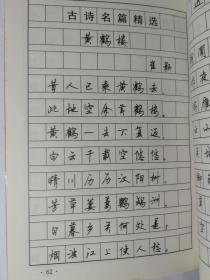 古诗名篇精选
黄鹤楼
崔颢
昔人已乘黄鹤去
此地空余黄鹤楼。
黄鹤一去不复返
白云千载空悠悠。
晴川历历汉阳树
芳草萋萋鹦鹉洲。
日暮乡关何处是
烟波江上使人愁。
62